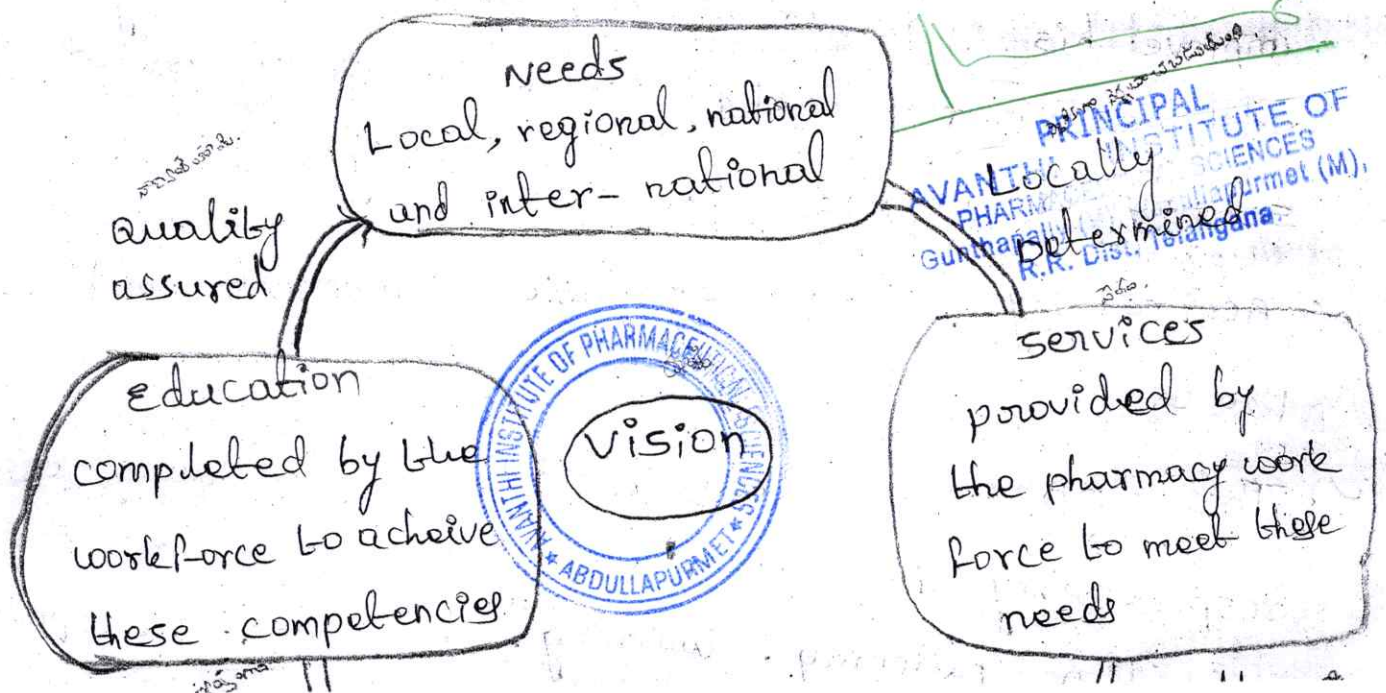 Needs
Local, regional, national
and inter-national
Quality
assured
PRINCIPAL
AVANTHI INSTITUTE OF
PHARMACEUTICAL SCIENCES
Gunthapally (V), Abdullapurmet (M),
R.R. Dist. Telangana
Locally
Determined
Education
completed by the
workforce to acheive
these competencies
AVANTHI INSTITUTE OF PHARMACEUTICAL SCIENCES
* ABDULLAPURMET *
Vision
services
porovided by
the pharmacy work
force to meet these
needs